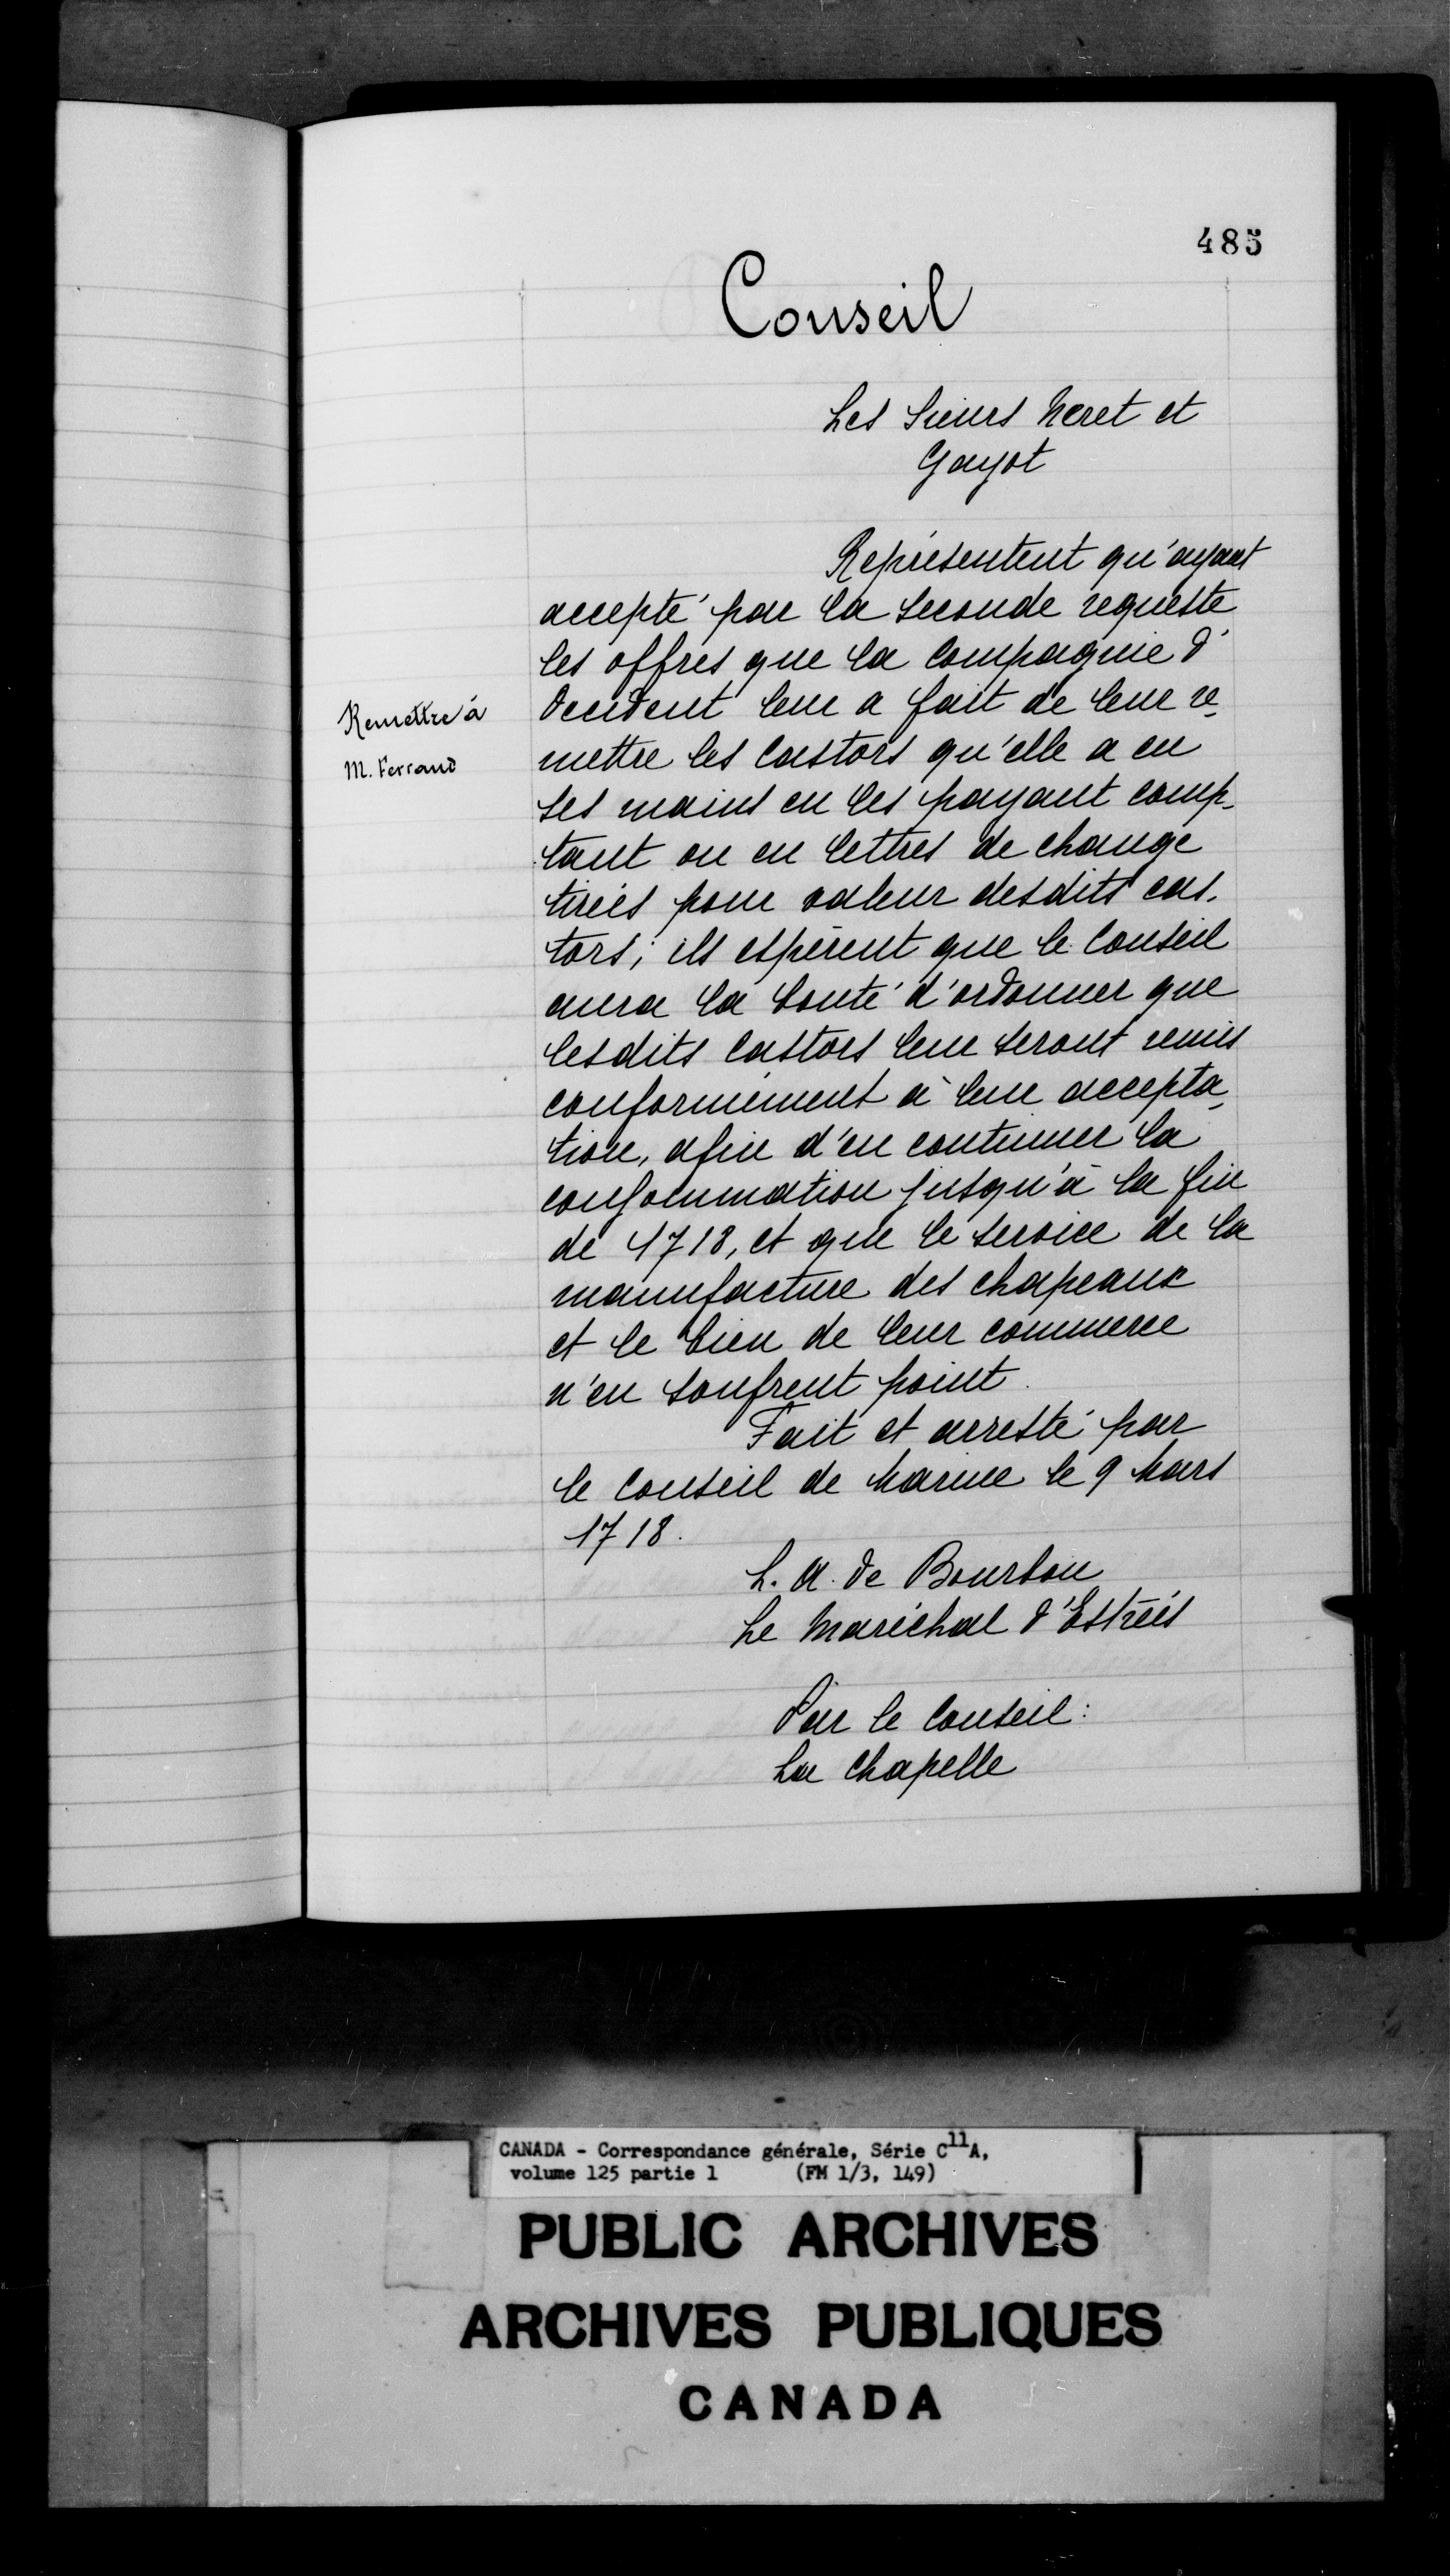 485
Conseil
Les Sieurs Neret et
Gayot
Représentent qu'ayant
accepté par la seconde requeste
les offres que la Compagnie d'
Occident leur a fait de leur re-
mettre les Castors qu'elle a en
ses mains en les payant comp-
tant ou en lettres de change
tirées pour valeur desdits cas-
tors; ils espèrent que le Conseil
aura la bonté d'ordonner que
lesdits Castors leur seront remis
conformément à leur accepta-
tion, afin d'en continuer la
consommation jusqu'à la fin
de 1718, et que le service de la
manufacture des chapeaux
et le bien de leur commerce
n'en soufrent point.
Fait et arresté par
le Conseil de Marine le 9 Mars
1718.
L. A. de Bourbon
Le Maréchal d'Estrées
Par le Conseil:
La Chapelle
Remettre à
M. Ferrand
CANADA - Correspondance générale, Série C11A,
volume 125 partie 1 (FM 1/3, 149)
PUBLIC ARCHIVES
ARCHIVES PUBLIQUES
CANADA